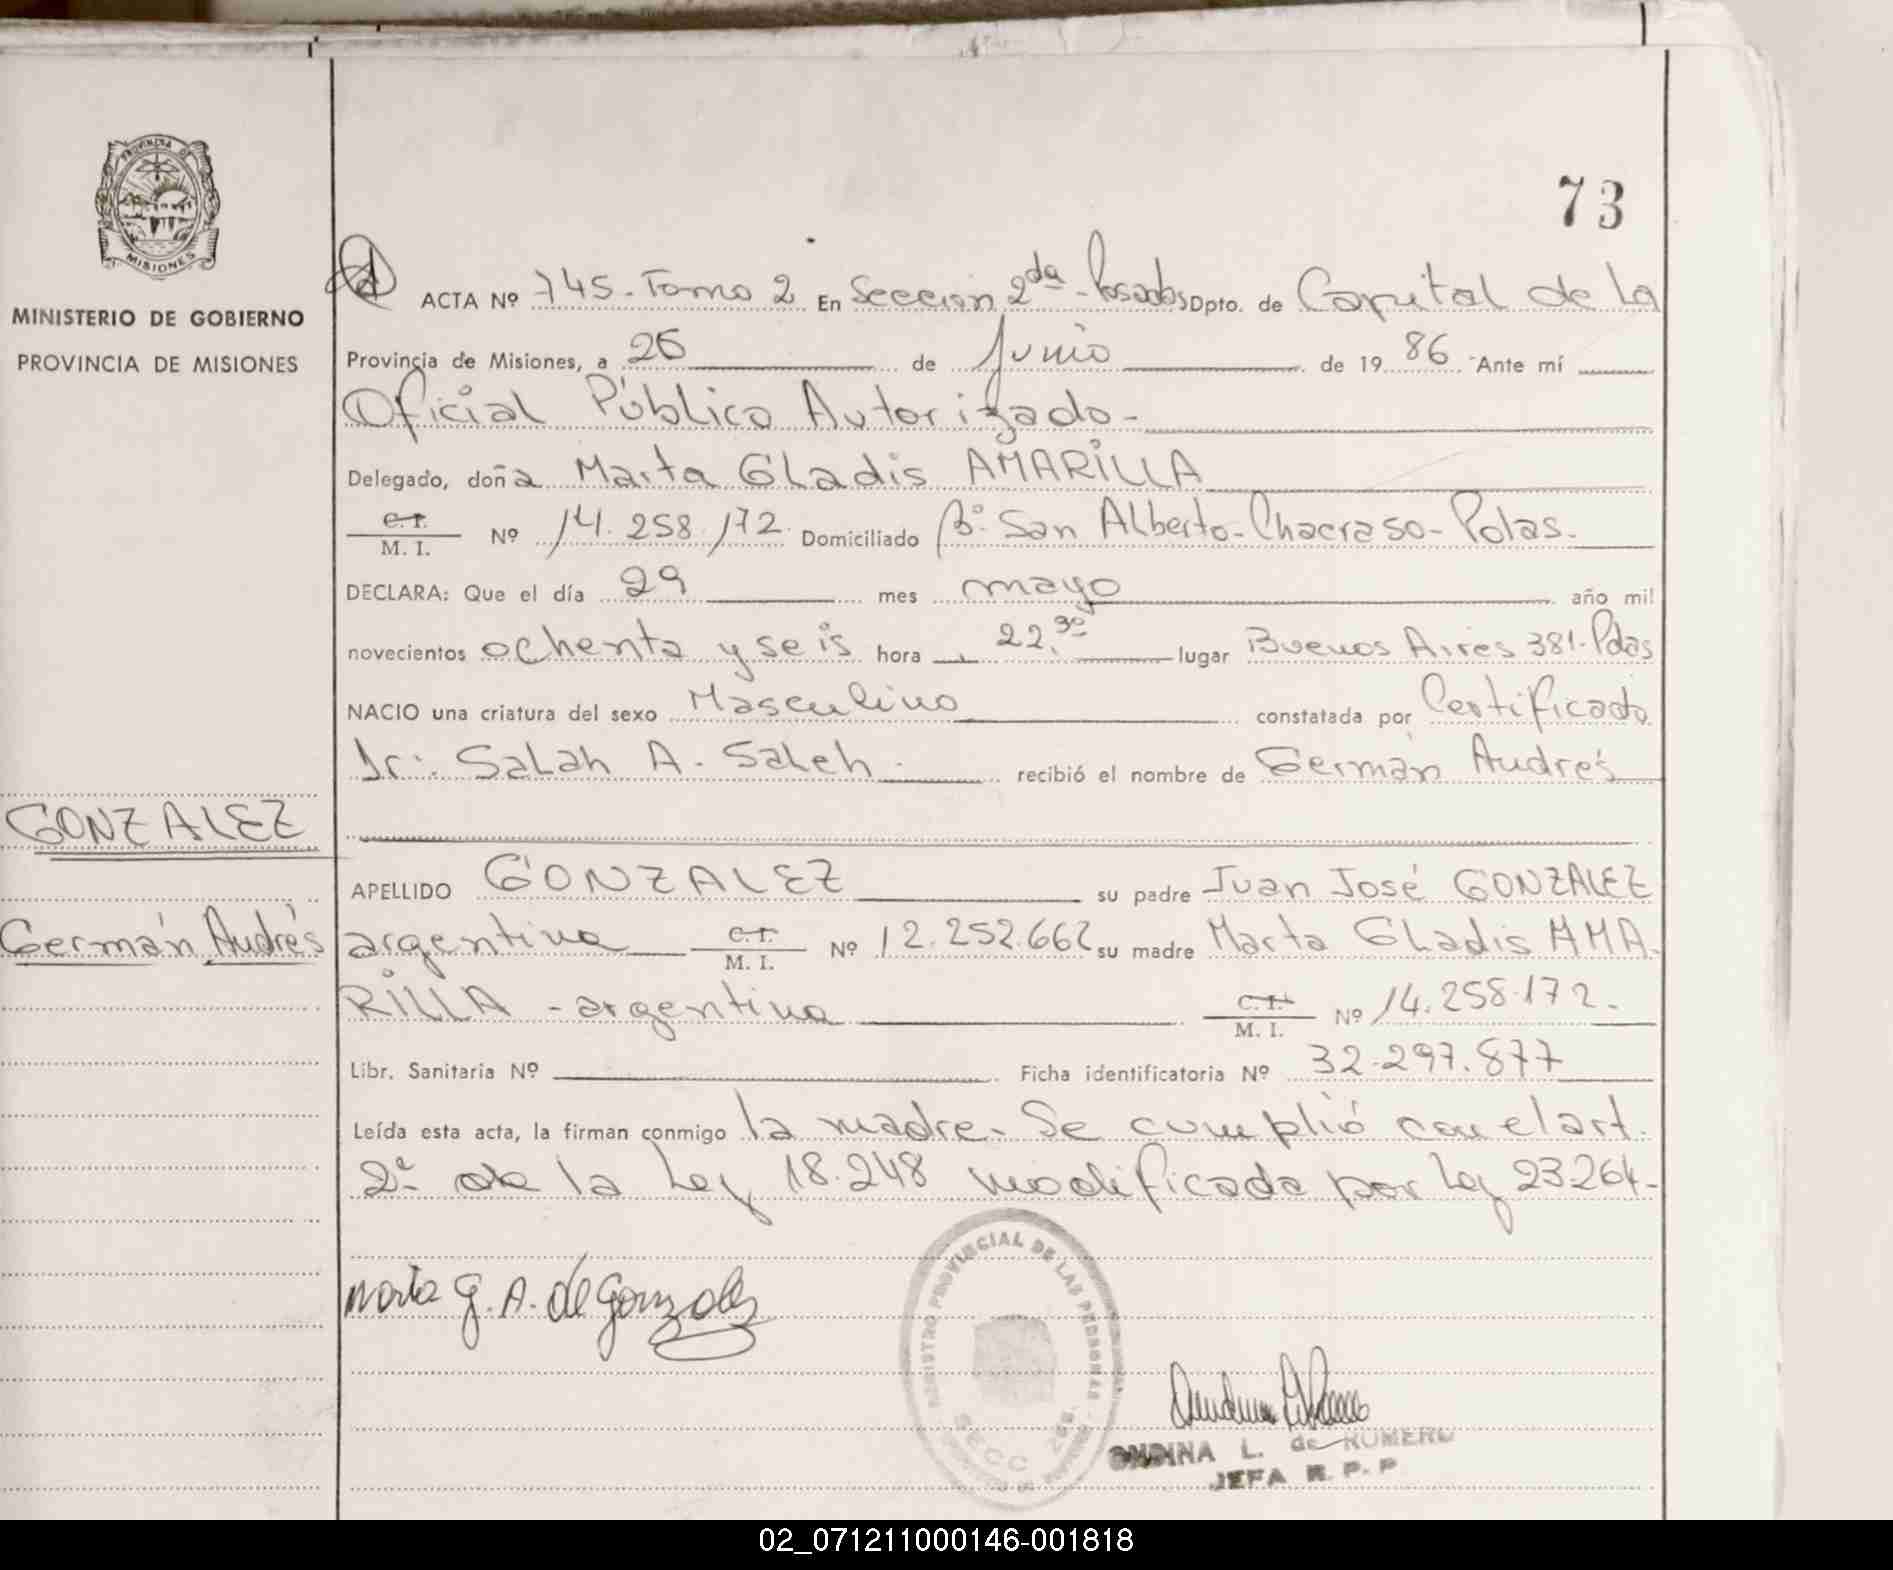 73
PROVINCIA DE
MISIONES
MINISTERIO DE GOBIERNO
PROVINCIA DE MISIONES
ACTA Nº 745-Tomo 2 En Sección 2da-Posadas Dpto. de Capital de la
Provincia de Misiones, a 26 de Junio de 19 86 Ante mí
Oficial Público Autorizado-
Delegado, doña Marta Gladis AMARILLA
C.I.
M. I. Nº 14.258.172 Domiciliado Bº San Alberto-Chacra 50-Pdas.
DECLARA: Que el día 29 mes mayo año mil
novecientos ochenta y seis hora 22,30 lugar Buenos Aires 381-Pdas
NACIO una criatura del sexo Masculino constatada por Certificado
Dr: Salah A. Saleh recibió el nombre de Germán Andrés
GONZALEZ
APELLIDO GONZALEZ su padre Juan José GONZALEZ
Germán Andrés
argentina C.I. M. I. Nº 12.252.662 su madre Marta Gladis AMA-
RILLA - argentina C.I. M. I. Nº 14.258.172-
Libr. Sanitaria Nº Ficha identificatoria Nº 32.297.877
Leída esta acta, la firman conmigo la madre. Se cumplió con el art.
2º de la Ley 18.248 modificada por Ley 23264-
Marta G. A. de Gonzalez
REGISTRO PROVINCIAL DE LAS PERSONAS
SECC 2da.
ONDINA L. de ROMERO
JEFA R. P. P
02_071211000146-001818